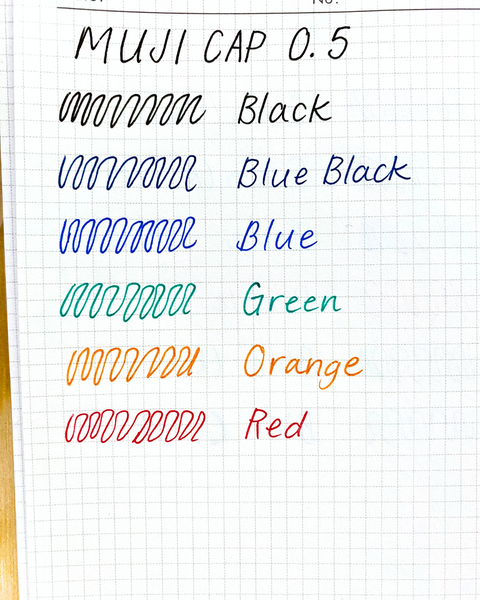 No.
MUJI CAP 0.5
Black
Blue Black
Blue
Green
Orange
Red